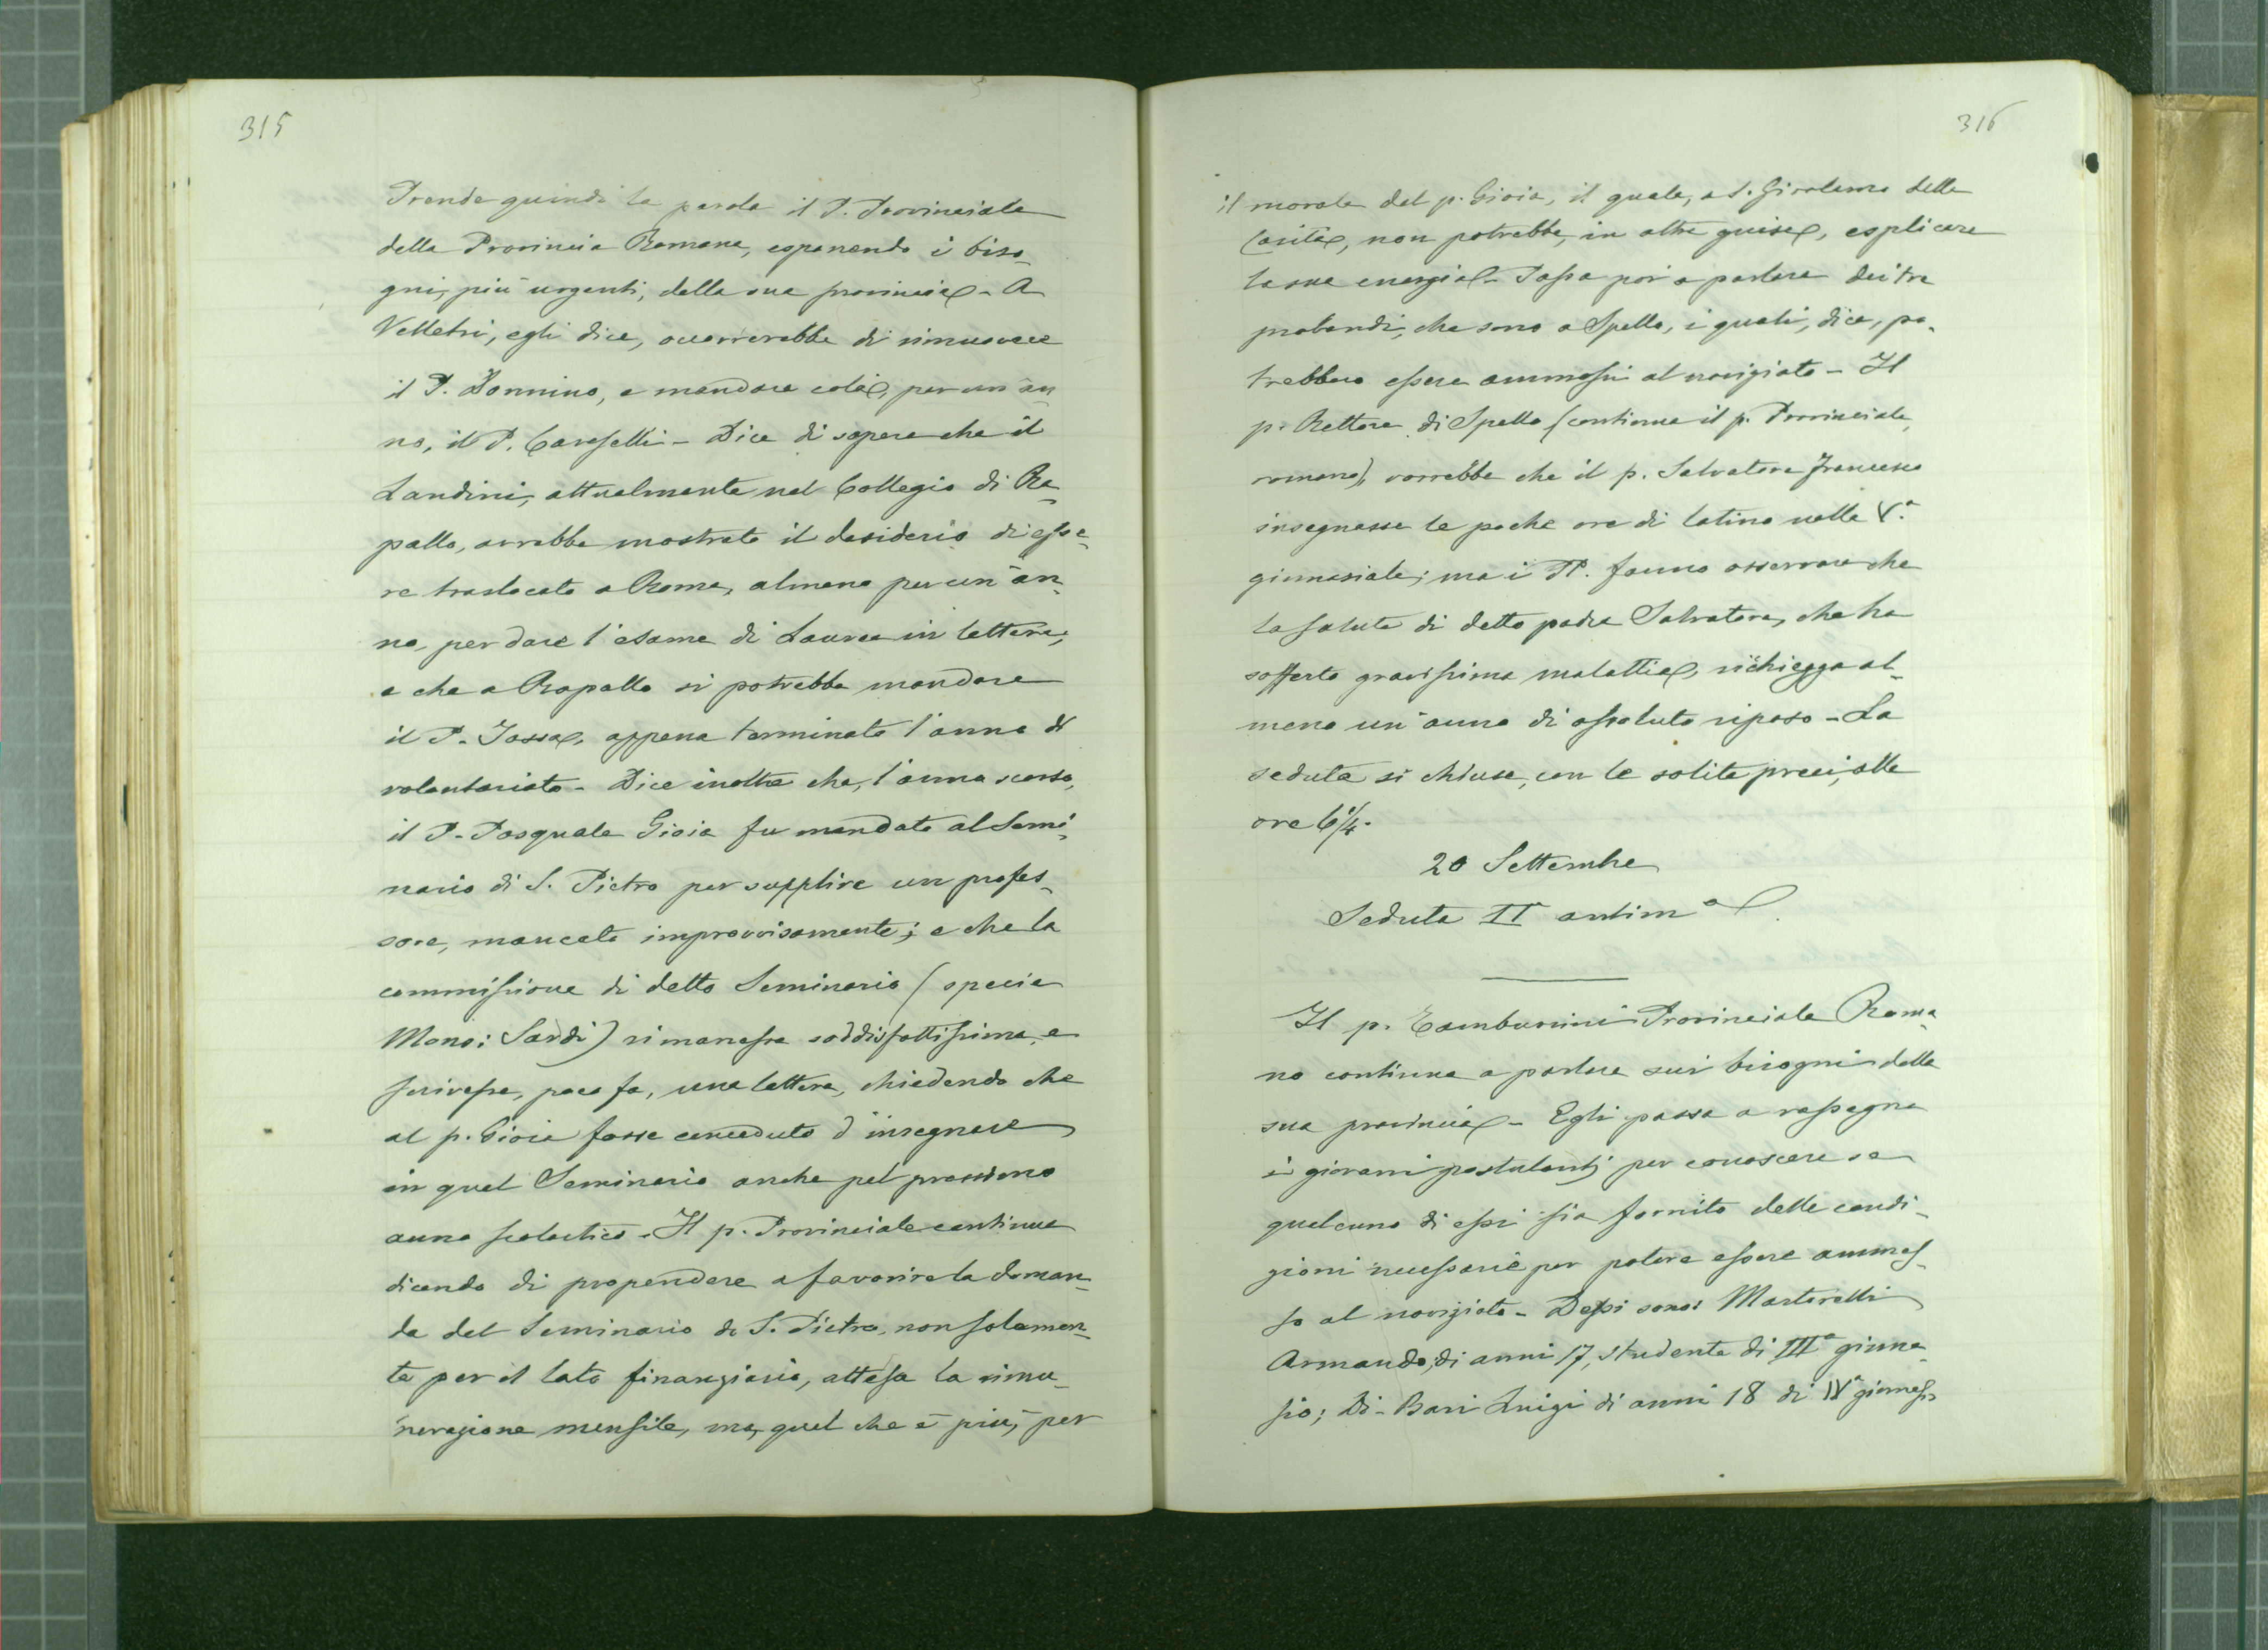 315
Prende quindi la parola il P. Provinciale
della Provincia Romana, esponendo i biso-
gni, più urgenti, della sua provincia - A
Velletri, egli dice, occorrerebbe di rimuovere
il P. Donnino, e mandare colà, per un an-
no, il P. Caroselli - Dice di sapere che il
Landini, attualmente nel Collegio di Ra-
pallo, avrebbe mostrato il desiderio di esse-
re traslocato a Roma, almeno per un'an-
no, per dare l'esame di Laurea in lettere;
e che a Rapallo si potrebbe mandare
il P. Jossa, appena terminato l'anno di
volontariato - Dice inoltre che, l'anno scorso,
il P. Pasquale Gioia fu mandato al Semi-
nario di S. Pietro per supplire un profes-
sore, mancato improvvisamente; e che la
commissione di detto Seminario (specie
Mons: Sardi) rimanesse soddisfattissima, e
scrivesse, poco fa, una lettera, chiedendo che
al p. Gioia fosse conceduto d'insegnare
in quel Seminario anche pel prossimo
anno scolastico - Il p. Provinciale continua
dicendo di propendere a favorire la doman-
da del Seminario di S. Pietro, non solamen-
te per il lato finanziario, attesa la rimu-
nerazione mensile, ma, quel che è più, per
316
il morale del p. Gioia, il quale, a S. Girolamo della
Carità, non potrebbe, in altre guise, esplicare
la sua energia - Passa poi a parlare dei tre
probandi, che sono a Spello, i quali, dice, po-
trebbero essere ammessi al noviziato - Il
p. Rettore di Spello (continua il p. Provinciale
romano), vorrebbe che il p. Salvatore Francesco
insegnasse le poche ore di latino nella V.ª
ginnasiale; ma i PP. fanno osservare che
la salute di detto padre Salvatore, che ha
sofferto gravissima malattia, richiegga al-
meno un'anno di assoluto riposo - La
seduta si chiuse, con le solite preci, alle
ore 6 1/4.
20 Settembre
Seduta IIª antimª
Il p. Tamburrini Provinciale Roma-
no continua a parlare sui bisogni della
sua provincia - Egli passa a rassegna
i giovani postulanti per conoscere se
qualcuno di essi sia fornito delle condi-
zioni necessarie per potere essere ammes-
so al noviziato - Dessi sono: Martorelli
Armando, di anni 17, studente di IIIª ginna-
sio; Di-Bari Luigi di anni 18 di IVª ginnasio